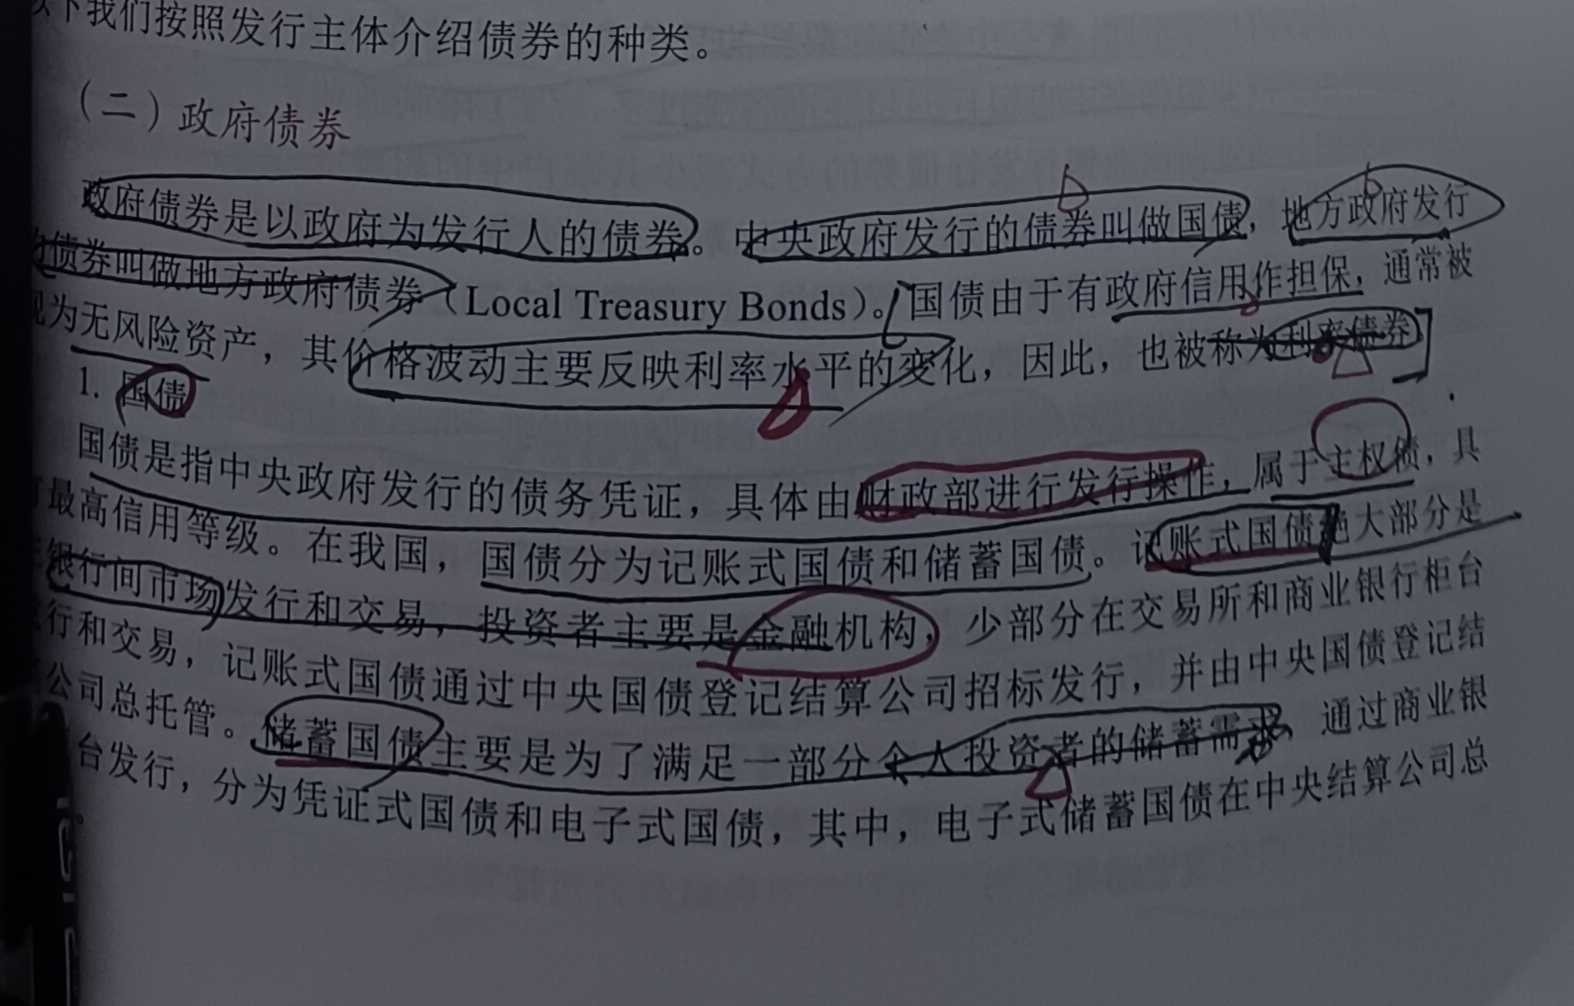 下我们按照发行主体介绍债券的种类。
（二）政府债券
政府债券是以政府为发行人的债券。中央政府发行的债券叫做国债，地方政府发行
的债券叫做地方政府债券（Local Treasury Bonds）。国债由于有政府信用作担保，通常被
视为无风险资产，其价格波动主要反映利率水平的变化，因此，也被称为利率债券
1. 国债
国债是指中央政府发行的债务凭证，具体由财政部进行发行操作，属于主权债，具
最高信用等级。在我国，国债分为记账式国债和储蓄国债。记账式国债绝大部分是
银行间市场发行和交易，投资者主要是金融机构，少部分在交易所和商业银行柜台
行和交易，记账式国债通过中央国债登记结算公司招标发行，并由中央国债登记结
公司总托管。储蓄国债主要是为了满足一部分个人投资者的储蓄需求，通过商业银
台发行，分为凭证式国债和电子式国债，其中，电子式储蓄国债在中央结算公司总